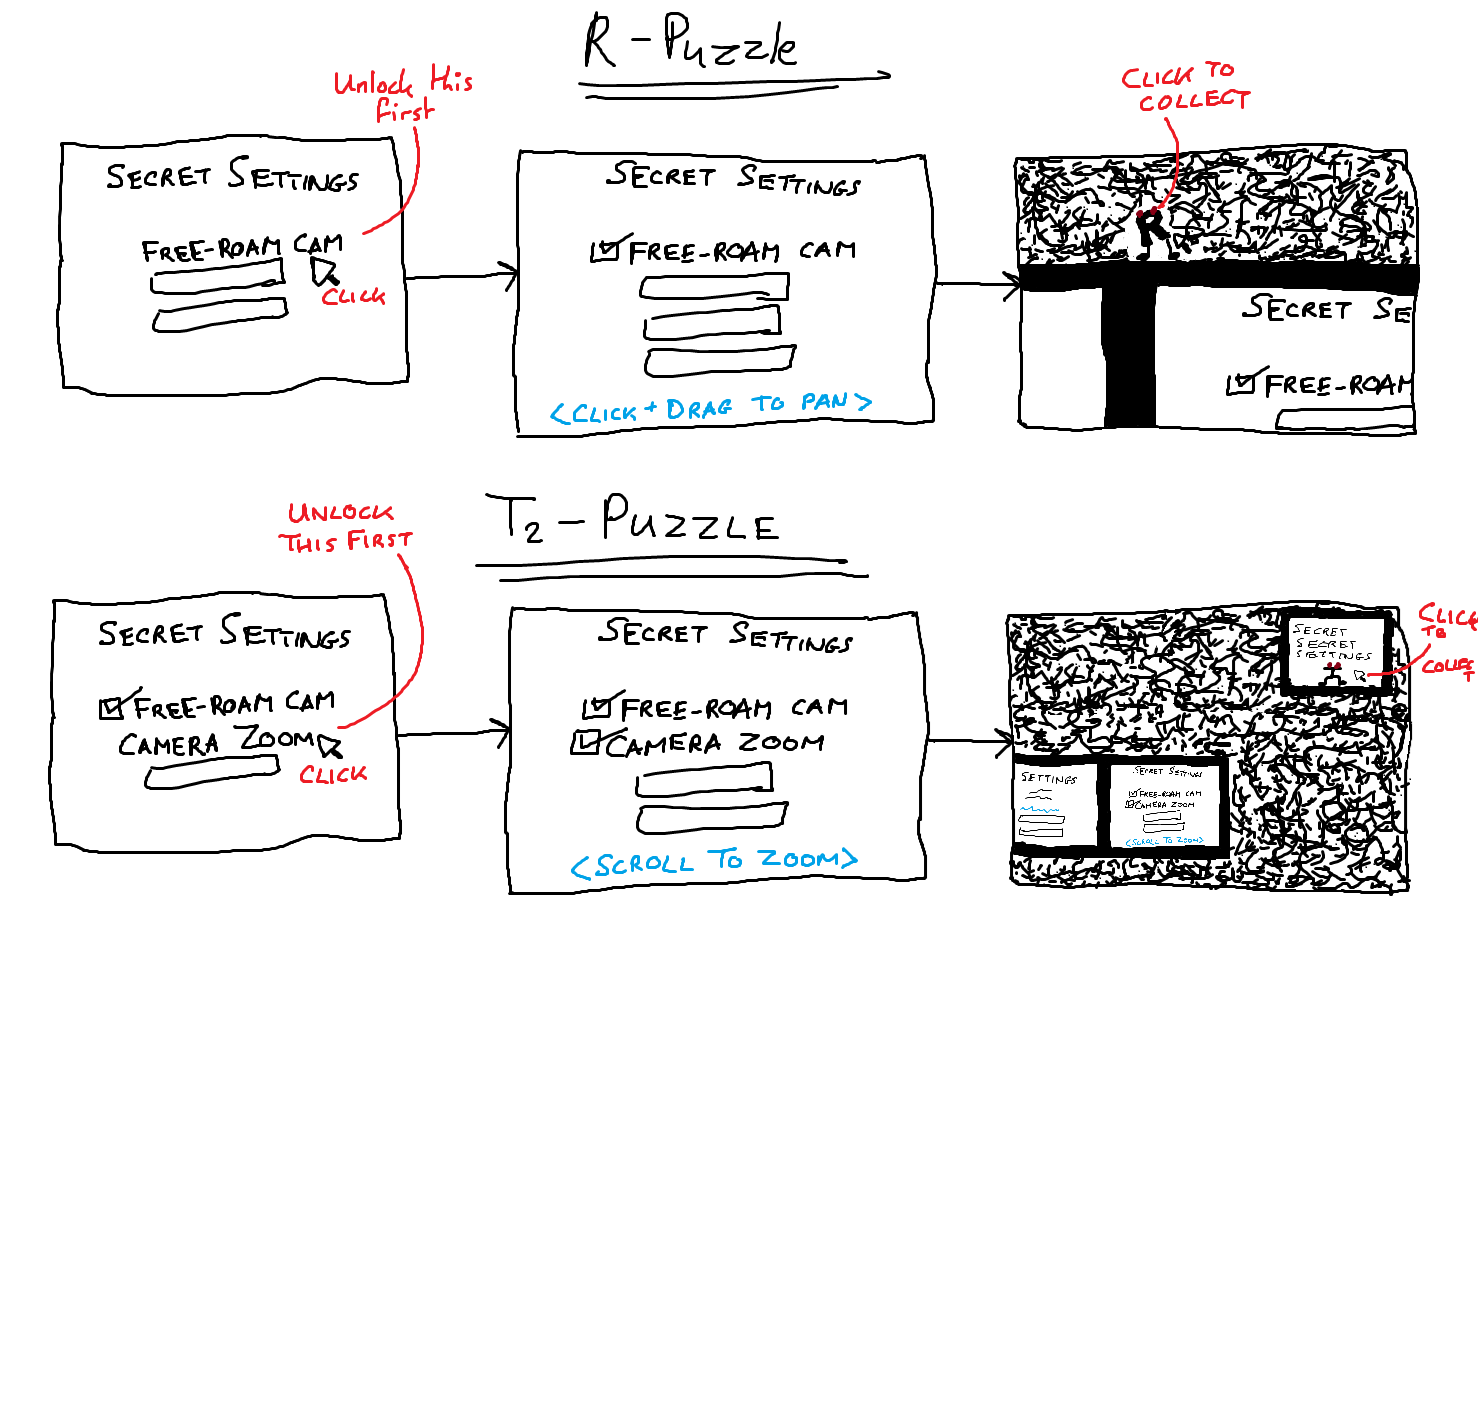 R-Puzzle
Unlock this
first
CLICK TO
COLLECT
SECRET SETTINGS
FREE-ROAM CAM
CLICK
SECRET SETTINGS
FREE-ROAM CAM
<CLICK + DRAG TO PAN>
R
SECRET SE
FREE-ROAM
T2-PUZZLE
UNLOCK
THIS FIRST
SECRET SETTINGS
FREE-ROAM CAM
CAMERA ZOOM
CLICK
SECRET SETTINGS
FREE-ROAM CAM
CAMERA ZOOM
<SCROLL TO ZOOM>
SECRET
SECRET
SETTINGS
CLICK
TO
COLLEC
T
SETTINGS
SECRET SETTINGS
FREE-ROAM CAM
CAMERA ZOOM
<SCROLL TO ZOOM>